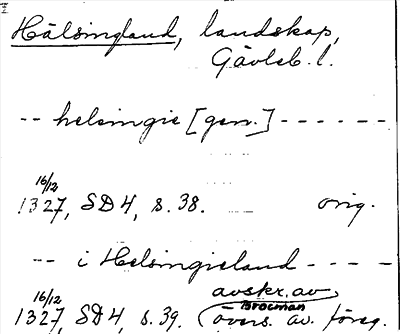 Hälsingland, landskap,
Gävleb. l.
-- helsingie [gen.] ------
16/12
1327, SD 4, s. 38. orig.
-- i Helsingieland ----
avskr. av
16/12 Brocman
1327, SD 4, s. 39. (övers. av föreg.